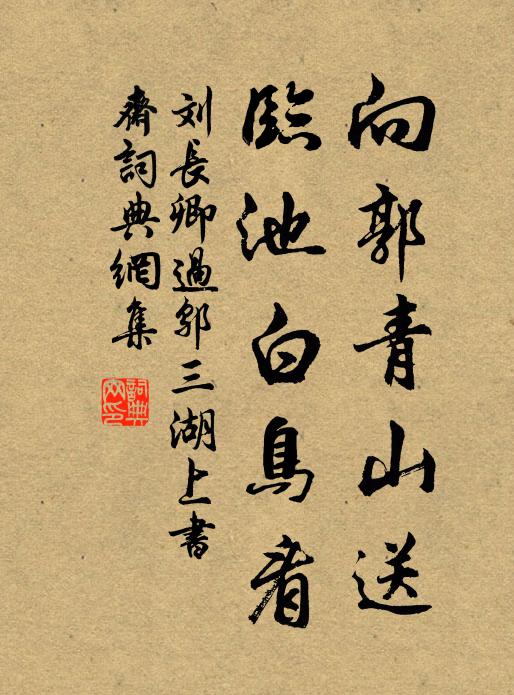 向郭青山送
臨池白鳥看
刘長卿過鄔三湖上書
齋詞典網集
詞典
网印